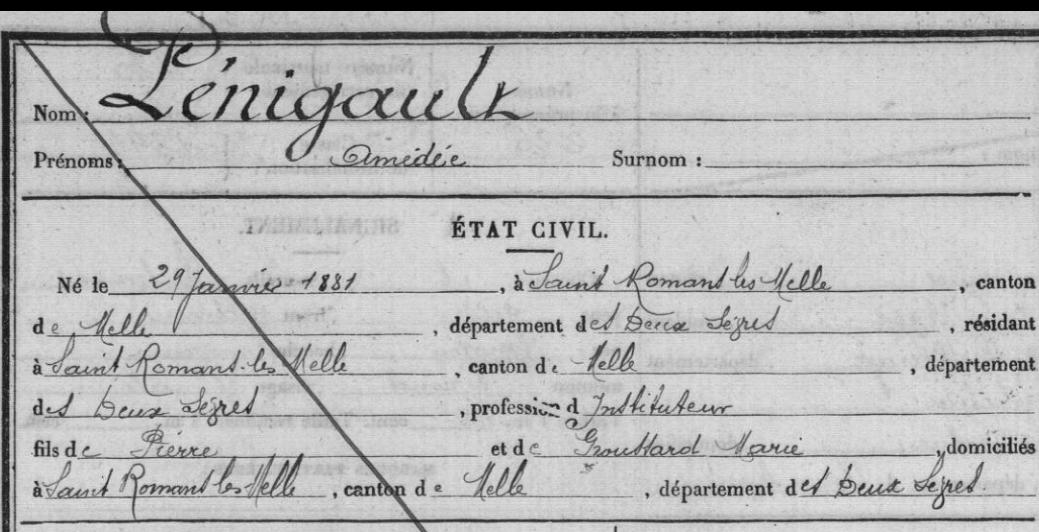 Nom : Pénigault
Prénoms : Amédée Surnom :
ÉTAT CIVIL.
Né le 29 Janvier 1881, à Saint Romans les Melle, canton
de Melle, département des Deux Sèvres, résidant
à Saint Romans-les Melle, canton de Melle, département
des Deux Sèvres, profession d Instituteur
fils de Pierre et de Marie, domiciliés
à Saint Romans les Melle, canton de Melle, département des Deux Sèvres